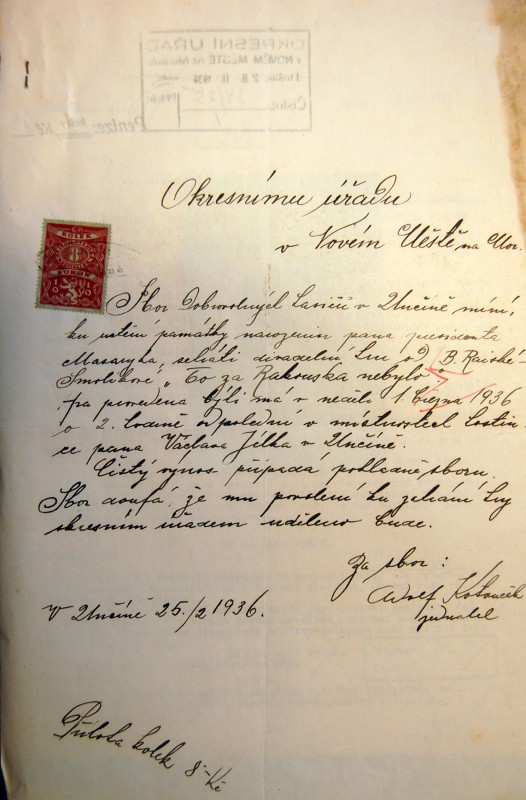 OKRESNÍ ÚŘAD
v NOVÉM MĚSTĚ na Mor.
Došlo: 28. II. 1936
Číslo:
Peníze: Kč
Okresnímu úřadu
v Novém Městě na Mor.
KOLEK
8
Sbor Dobrovolných hasičů v Unčíně míní,
ku uctění památky narozenin pana presidenta
Masaryka, sehráti divadelní hru od B. Rajské-
Smolíkové, „To za Rakouska nebylo"
Hra provedena býti má v neděli 1. března 1936
o 2. hodině odpolední v místnostech hostin-
ce pana Václava Jílka v Unčíně.
Čistý výnos připadá pokladně sboru.
Sbor doufá, že mu povolení ku sehrání hry
okresním úřadem uděleno bude.
Za sbor:
Adolf
jednatel
V Unčíně 25./2 1936.
Příloha kolek 8 Kč